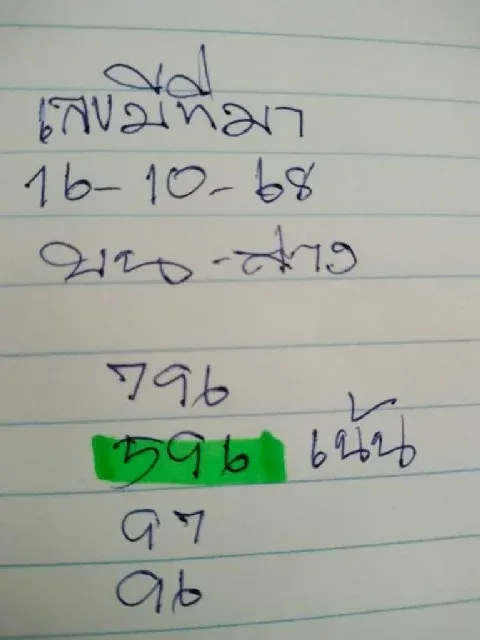 เลขมีที่มา
16-10-68
บน-ล่าง
796
596 เน้น
97
96